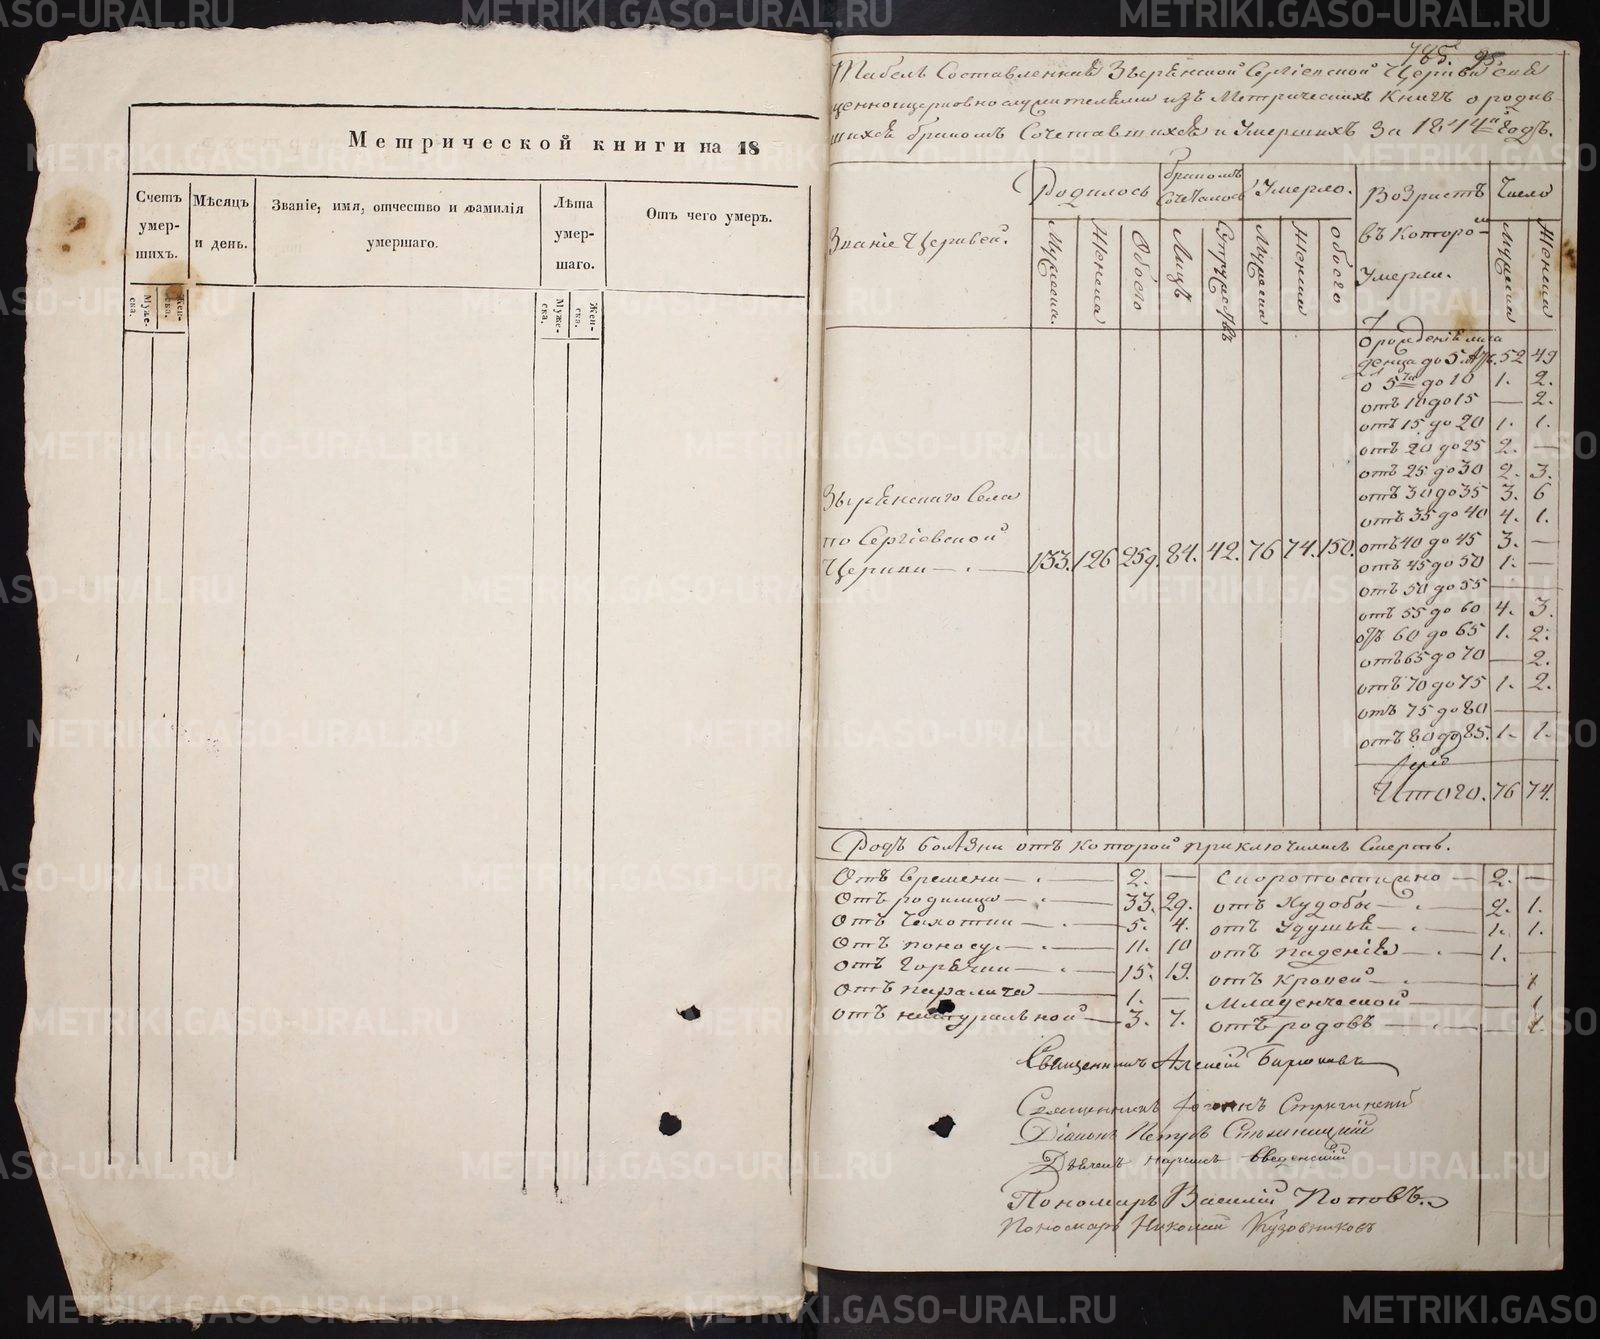 Метрической книги на 18
Счетъ умер-шихъ.
Мѣсяцъ и день.
Званіе, имя, отчество и фамилія умершаго.
Лѣта умер-шаго.
Отъ чего умеръ.
Муже-ска.
Жен-ска.
Муже-ска.
Жен-ска.
785. 95
Табель Составленная Зырянской Сергіевской Церкви свя
щенноцерковнослужителями изъ Метрическихъ Книгъ о родив
шихся бракомъ Сочетавшихся и Умершихъ За 1844й Годъ.
Званіе Церквей.
Родилось
бракомъ Сочеталось
Умерло.
Возрастъ въ Которо Умерли.
Число
Мужеска.
Женска
Обоего
Лицъ
Супружествъ
Мужеска
Женска
обоего
Мужеска
Женска
Зырянскаго Села
по Сергіевской
Церкви 133. 126 259. 84. 42. 76 74. 150.
О рожденія мла
денца до 5 52 49
о 5ти до 10 1. 2.
отъ 10 до 15 — 2.
отъ 15 до 20 1. 1.
отъ 20 до 25 2. —
отъ 25 до 30 2. 3.
отъ 30 до 35 3. 6
отъ 35 до 40 4. 1.
отъ 40 до 45 3. —
отъ 45 до 50 1. —
отъ 50 до 55 — —
отъ 55 до 60 4. 3.
отъ 60 до 65 1. 2.
отъ 65 до 70 — 2.
отъ 70 до 75 1. 2.
отъ 75 до 80 — —
отъ 80 до 85. 1. 1.
Итого. 76 74.
Родъ болѣзни отъ Которой приключились Смерть.
Отъ времени 2. —
Отъ родимца 33. 29.
Отъ Чахотки 5. 4.
Отъ поносу 11. 10
отъ Горячки 15. 19.
Отъ паралича 1. —
отъ натуральной 3. 7.
Скоропостижно 2. —
отъ Худобы 2. 1.
отъ Удушья 1. 1.
отъ падения 1. —
отъ Кровей — 1
Младенческой — 1
отъ родовъ — 1.
Священникъ Алексій Бирюковъ
Священникъ Іоаннъ
Діаконъ Петръ
Дьячекъ Введенскій
Пономарь Василій Поповъ.
Пономарь Николай Кузовниковъ
METRIKI.GASO-URAL.RU